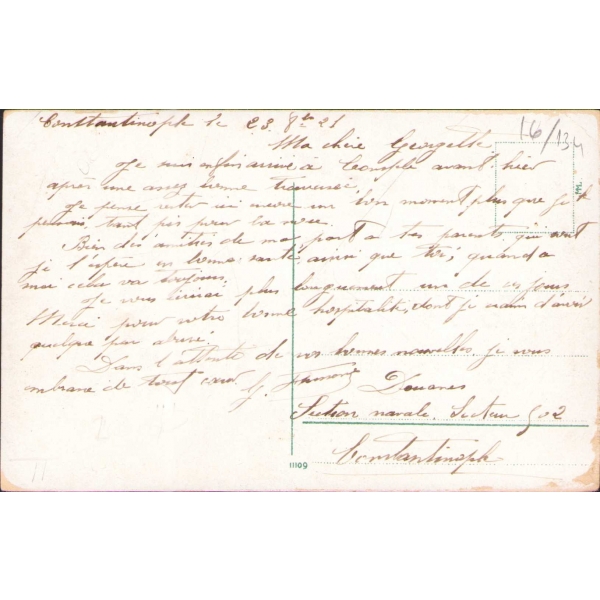 Constantinople le 23 8bre 21
16/134
Ma chère Georgette
Je suis enfin arrivé à Cconple avant hier
après une assez bonne traversée.
Je pense rester ici encore un bon moment, plus que je le
pensais, tant pis pour la noce.
Bien des amitiés de ma part à tes parents qui sont
je l'espère en bonne santé ainsi que toi, quand à
moi celui va toujours.
Je vous écrirai plus longuement un de ces jours
Merci pour votre bonne hospitalité, dont je crains d'avoir
quelque peu abusé.
Dans l'attente de vos bonnes nouvelles, je vous
embrasse de tout cœur. G.
Douanes
Section navale. Secteur 502
Constantinople
11109